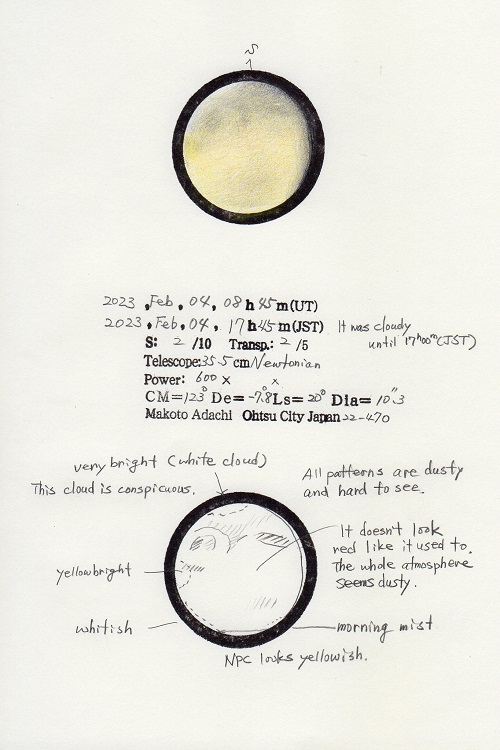 S
2023, Feb, 04, 08h45m(UT)
2023, Feb, 04, 17h45m(JST) It was cloudy
until 17h00m(JST)
S: 2 /10 Transp.: 2 /5
Telescope: 35.5 cm Newtonian
Power: 600 x x
CM=123° De= -7.8 Ls= 20° Dia= 10".3
Makoto Adachi Ohtsu City Japan 22-470
very bright (white cloud)
This cloud is conspicuous.
All patterns are dusty
and hard to see.
It doesn't look
red like it used to.
The whole atmosphere
seems dusty.
yellow bright
whitish
morning mist
NPC looks yellowish.